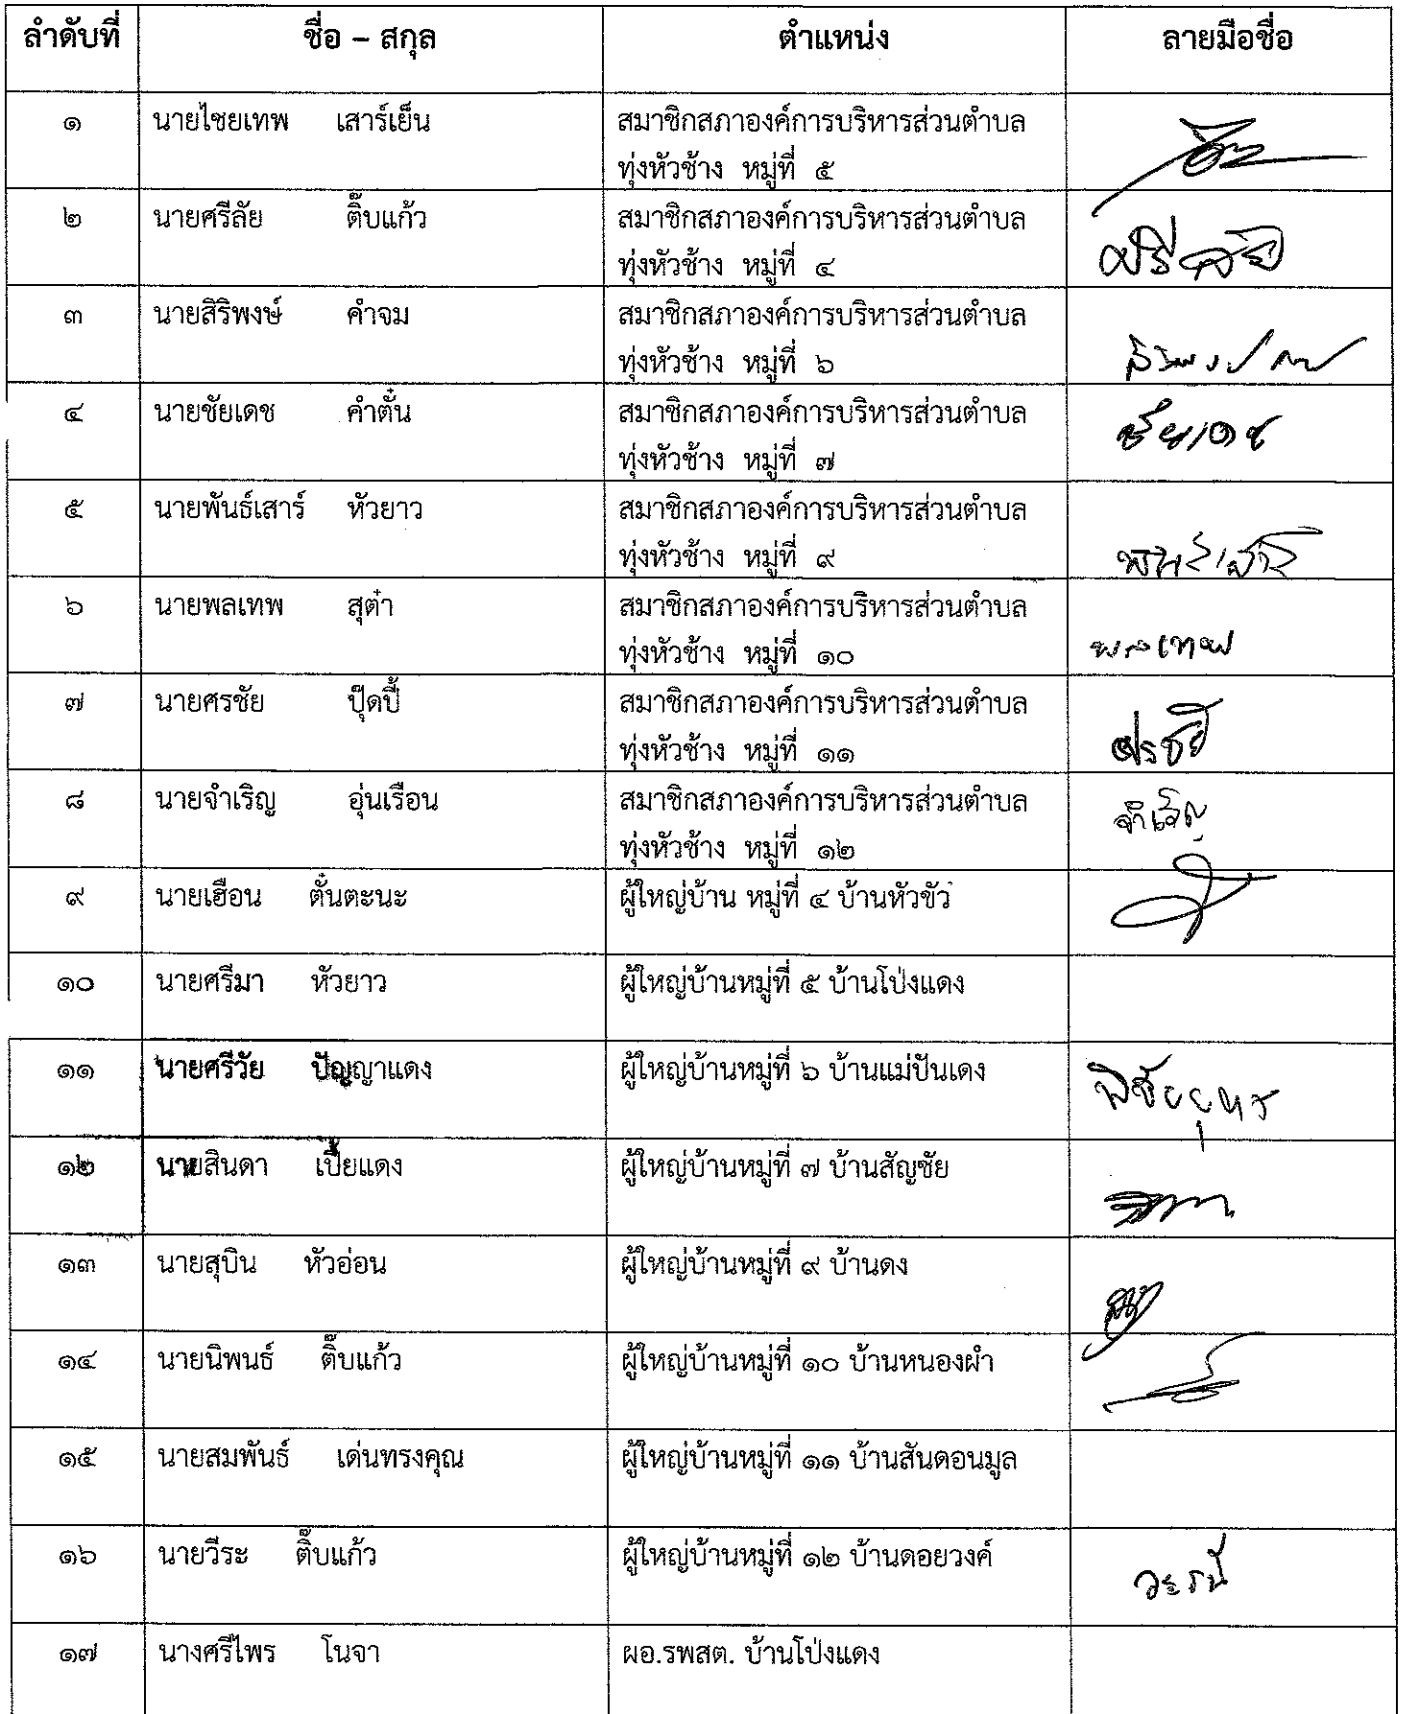 ลำดับที่ ชื่อ – สกุล ตำแหน่ง ลายมือชื่อ
๑ นายไชยเทพ เสาร์เย็น สมาชิกสภาองค์การบริหารส่วนตำบล
ทุ่งหัวช้าง หมู่ที่ ๕
๒ นายศรีลัย ติ๊บแก้ว สมาชิกสภาองค์การบริหารส่วนตำบล
ทุ่งหัวช้าง หมู่ที่ ๔ ศรีลัย
๓ นายสิริพงษ์ คำจม สมาชิกสภาองค์การบริหารส่วนตำบล
ทุ่งหัวช้าง หมู่ที่ ๖
๔ นายชัยเดช คำตั๋น สมาชิกสภาองค์การบริหารส่วนตำบล ชัยเดช
ทุ่งหัวช้าง หมู่ที่ ๗
๕ นายพันธ์เสาร์ หัวยาว สมาชิกสภาองค์การบริหารส่วนตำบล
ทุ่งหัวช้าง หมู่ที่ ๙ พันธ์เสาร์
๖ นายพลเทพ สุต๋า สมาชิกสภาองค์การบริหารส่วนตำบล
ทุ่งหัวช้าง หมู่ที่ ๑๐ พลเทพ
๗ นายศรชัย ปุ๊ดปี้ สมาชิกสภาองค์การบริหารส่วนตำบล
ทุ่งหัวช้าง หมู่ที่ ๑๑ ศรชัย
๘ นายจำเริญ อุ่นเรือน สมาชิกสภาองค์การบริหารส่วนตำบล จำเริญ
ทุ่งหัวช้าง หมู่ที่ ๑๒
๙ นายเฮือน ตั๋นตะนะ ผู้ใหญ่บ้าน หมู่ที่ ๔ บ้านหัวขัว
๑๐ นายศรีมา หัวยาว ผู้ใหญ่บ้านหมู่ที่ ๕ บ้านโป่งแดง
๑๑ นายศรีวัย ปัญญาแดง ผู้ใหญ่บ้านหมู่ที่ ๖ บ้านแม่ปันเดง
๑๒ นายสินดา เปี้ยแดง ผู้ใหญ่บ้านหมู่ที่ ๗ บ้านสัญชัย
๑๓ นายสุบิน หัวอ่อน ผู้ใหญ่บ้านหมู่ที่ ๙ บ้านดง
๑๔ นายนิพนธ์ ติ๊บแก้ว ผู้ใหญ่บ้านหมู่ที่ ๑๐ บ้านหนองผำ
๑๕ นายสมพันธ์ เด่นทรงคุณ ผู้ใหญ่บ้านหมู่ที่ ๑๑ บ้านสันดอนมูล
๑๖ นายวีระ ติ๊บแก้ว ผู้ใหญ่บ้านหมู่ที่ ๑๒ บ้านดอยวงค์
๑๗ นางศรีไพร โนจา ผอ.รพสต. บ้านโป่งแดง